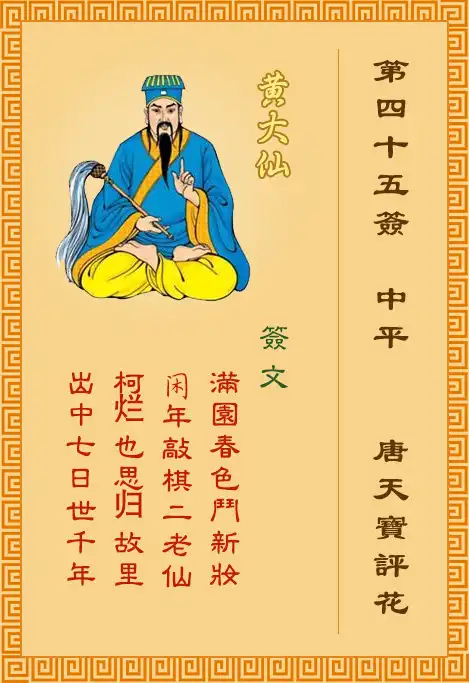 第四十五簽　中平　唐天寶評花
黄大仙
簽文
滿園春色鬥新妝
闲年敲棋二老仙
柯烂也思归故里
出中七日世千年